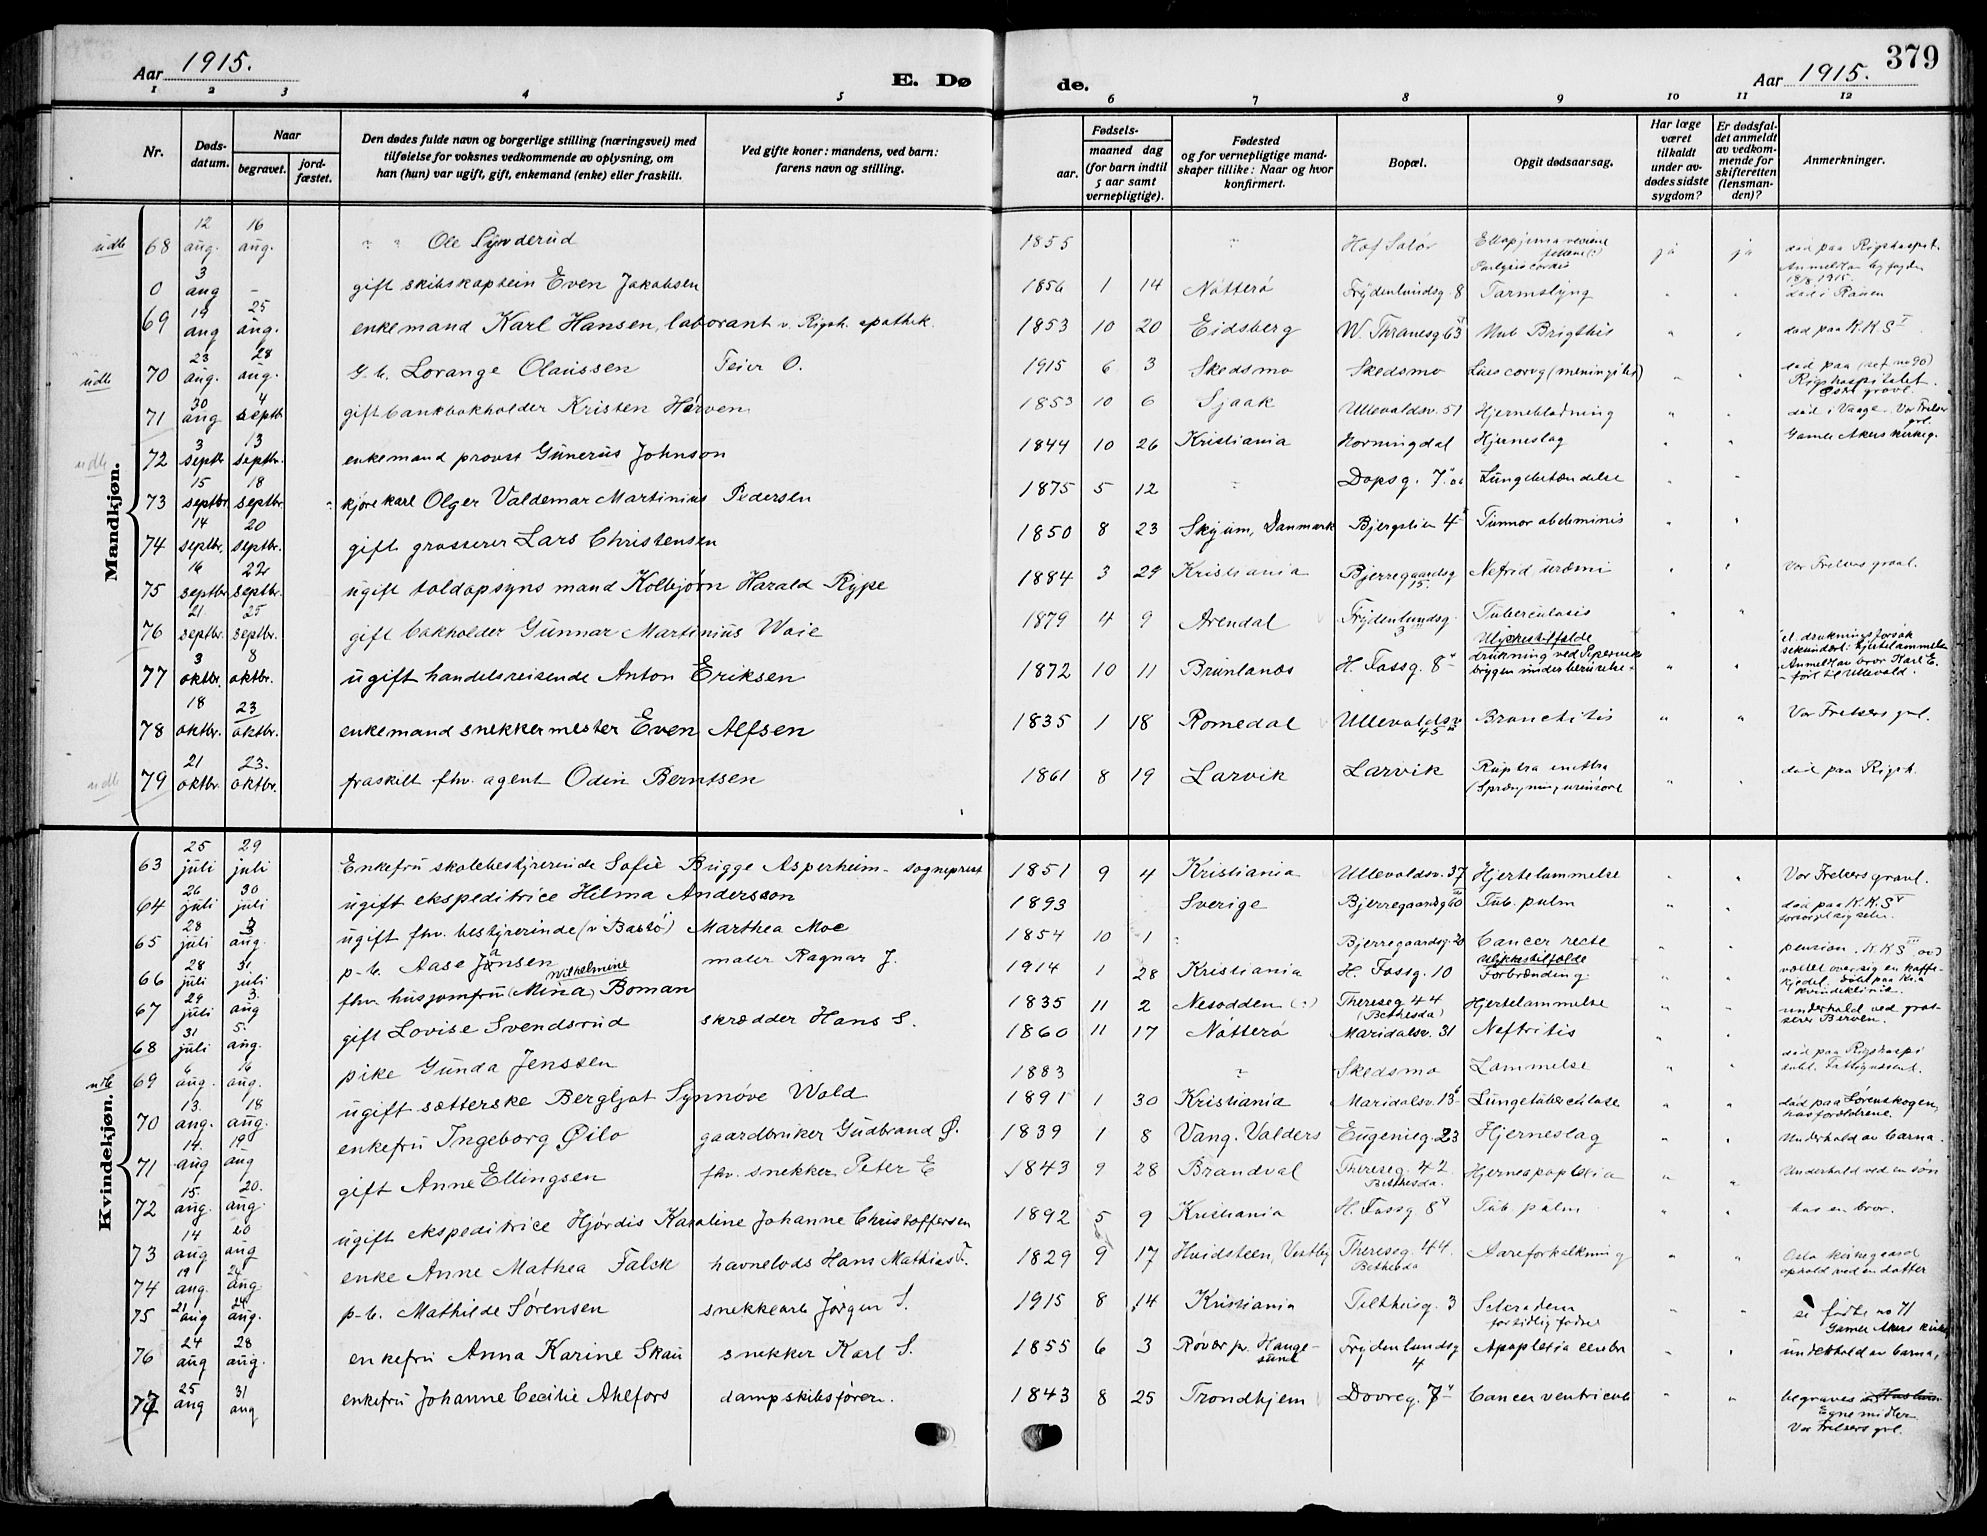 Aar 1915. E. Dø de. Aar 1915. 379
1 2 3 4 5 6 7 8 9 10 11 12
Nr. Døds-datum. Naar begravet. jord-fæstet. Den dødes fulde navn og borgerlige stilling (næringsvei) med tilføielse for voksnes vedkommende av oplysning, om han (hun) var ugift, gift, enkemand (enke) eller fraskilt. Ved gifte koner: mandens, ved barn: farens navn og stilling. Fødsels- aar. maaned dag (for barn indtil 5 aar samt vernepligtige). Fødested og for vernepligtige mand-skaper tillike: Naar og hvor konfirmert. Bopæl. Opgit dødsaarsag. Har læge været tilkaldt under av-dødes sidste sygdom? Er dødsfal-det anmeldt av vedkom-mende for skifteretten (lensman-den)? Anmerkninger.
Mandkjøn.
udb 68 12 aug. 16 aug. " " Ole Synderud 1855 " Hof Solør ja ja død paa Rigshospit.
0 3 aug - gift skibskaptein Even Jakobsen 1856 1 14 Nøtterø Frydenlundsg. 8 Tarmslyng " " Anmeldt av 18/8 1915. død i Rauen
69 19 aug 25 aug. enkemand Karl Hansen, laborant v. Rigsh. apothek. 1853 10 20 Eidsberg W. Thranesg 63 Mob Brigthis " " død paa K.K.S
udb 70 23 aug. 28 aug. g.b. Lorange Olaussen Feier O. 1915 6 3 Skedsmo Skedsmo (meningitis) " " død paa Rigshospitalet.
71 30 aug 4 septb gift bankbokholder Kristen Hørven 1853 10 6 Sjaak Ullevaldsv. 51 Hjerneblødning " " død i Vaage. Vor Frelser grl.
udb 72 3 septb 13 septbr. enkemand provst Gunerius Johnson 1844 10 26 Kristiania Horningdal Hjerneslag " " Gamle Akers kirkeg.
73 15 septbr. 18 septbr. kjørekarl Olger Valdemar Martinius Pedersen 1875 5 12 " Dopsg. 7 Lungebetændelse " "
74 14 septbr. 20 septbr. gift grosserer Lars Christensen 1850 8 23 Skjum, Danmark Bjergstien 4 Tumor abdominis " "
75 16 septbr. 22 septbr. ugift toldopsynsmand Kolbjørn Harald Rype 1884 3 29 Kristiania Bjerregaardsg 15. Nefrid uræmi " " Vor Frelsers gravl.
76 21. septbr. 25 septbr. gift bokholder Gunnar Martinius Waie 1879 4 9 Arendal Frydenlundsg. 3 Tuberculosis " "
77 3 oktbr. 8 oktbr. ugift handelsreisende Anton Eriksen 1872 10 11 Brunlanes H. Fossg. 8 Ulykkestilfælde drukning ved Pipervik bryggen under beruselse. " " et. drukningsforsøk sekundært: hjertelammelse Anmeldt av bror Karl E. - ført til Ullevald.
78 18 oktbr. 23 oktbr. enkemand snekkermester Even Alfsen 1835 1 18 Romedal Ullevaldsv 45 Bronchitis " " Vor Frelsers grl.
udb 79 21 oktbr. 23. oktbr. fraskilt fhv. agent Odin Berntsen 1861 8 19 Larvik Larvik Ruptra urethra (Sprængning urinrøret " " død paa Rigsh.
Kvindekjøn.
63 25 juli 29 juli Enkefru skolebestyrerinde Sofie Bugge Asperheim - sogneprest 1851 9 4 Kristiania Ullevaldsv. 37 Hjertelammelse " " Vor Frelsers gravl.
64 26 juli 30 juli ugift ekspeditrice Hilma Andersson 1893 Sverige Bjerregaardsg 60 Tub. pulm " " død paa K.K.S
65 28 juli 3 aug. ugift fhv. bestyrerinde (v Bastø) Marthea Moe 1854 10 1 " Bjerregaardsg. 20 Cancer recte " " pension. K.K.S
66 28 juli 31. juli p-b. Aase Jansen maler Ragnar J. 1914 1 28 Kristiania H. Fossg. 10 Ulykkestilfælde Forbrænding. " " væltet over sig en kaffe-kjedel. Død paa Kr.a kvindeklinik.
67 29 juli 3. aug fhv. husjomfru (Mina) Wilhelmine Boman 1835 11 2 Nesodden (?) Theresg. 44 (Bethesda) Hjertelammelse " " underhold ved gros-serer Berven.
68 31 juli 5. aug. gift Lovise Svendsrud skrædder Hans S. 1860 11 17 Nøtterø Maridalsv. 31 Neftritis " "
udb 69 6 aug. 16 aug. pike Gunda Jenssen 1883 " Skedsmo Lammelse " " død paa Rigshospi
70 13. aug. 18 aug. ugift sætterske Bergljot Synnøve Wold 1891 1 30 Kristiania Maridalsv. 13 Lungetuberculose " " død paa Lørenskogen, hos forældrene.
71 14. aug 19 aug enkefru Ingeborg Øilo gaardbruker Gudbrand Ø. 1839 1 8 Vang. Valders Eugenieg. 23 Hjerneslag " " Underhold av barna.
72 15. aug. 20. aug. gift Anne Ellingsen fhv. snekker Peter E 1843 9 28 Brandval Theresg. 42 Bethesda. Hjerneapoplexia " " Underhold ved en søn
73 14 aug 20 aug ugift ekspeditrice Hjørdis Karoline Johanne Christoffersen 1892 5 9 Kristiania H. Fossg 8 Tub. pulm " " hos en bror.
74 19 aug. 24 aug enke Anne Mathea Falck havnelods Hans Mathias F. 1829 9 17 Hvidsteen, Vestby Theresg. 44. Bethesda Aareforkalkning " " Oslo kirkegaard ophold ved en datter
75 21 aug 24 aug. p-b. Mathilde Sørensen snekkearb Jørgen S. 1915 8 14 Kristiania Telthusg. 3 Scleradem for tidlig fødsel " " se fødte no 71 Gamle Akers kirkeg
76 24 aug 28 aug. enkefru Anna Karine Skau snekker Karl S. 1855 6 3 Røvær pr. Hauge-sund Frydenlundsg 4 Apoplexia cerebr " " underhold av barna,
77 25 aug 31 aug enkefru Johanne Cecilie Ahlfors dampskibsfører. 1843 8 25 Trondhjem Dovreg. 7 Cancer ventriculi " " begraves Egne midler Vor Frelsers grl.